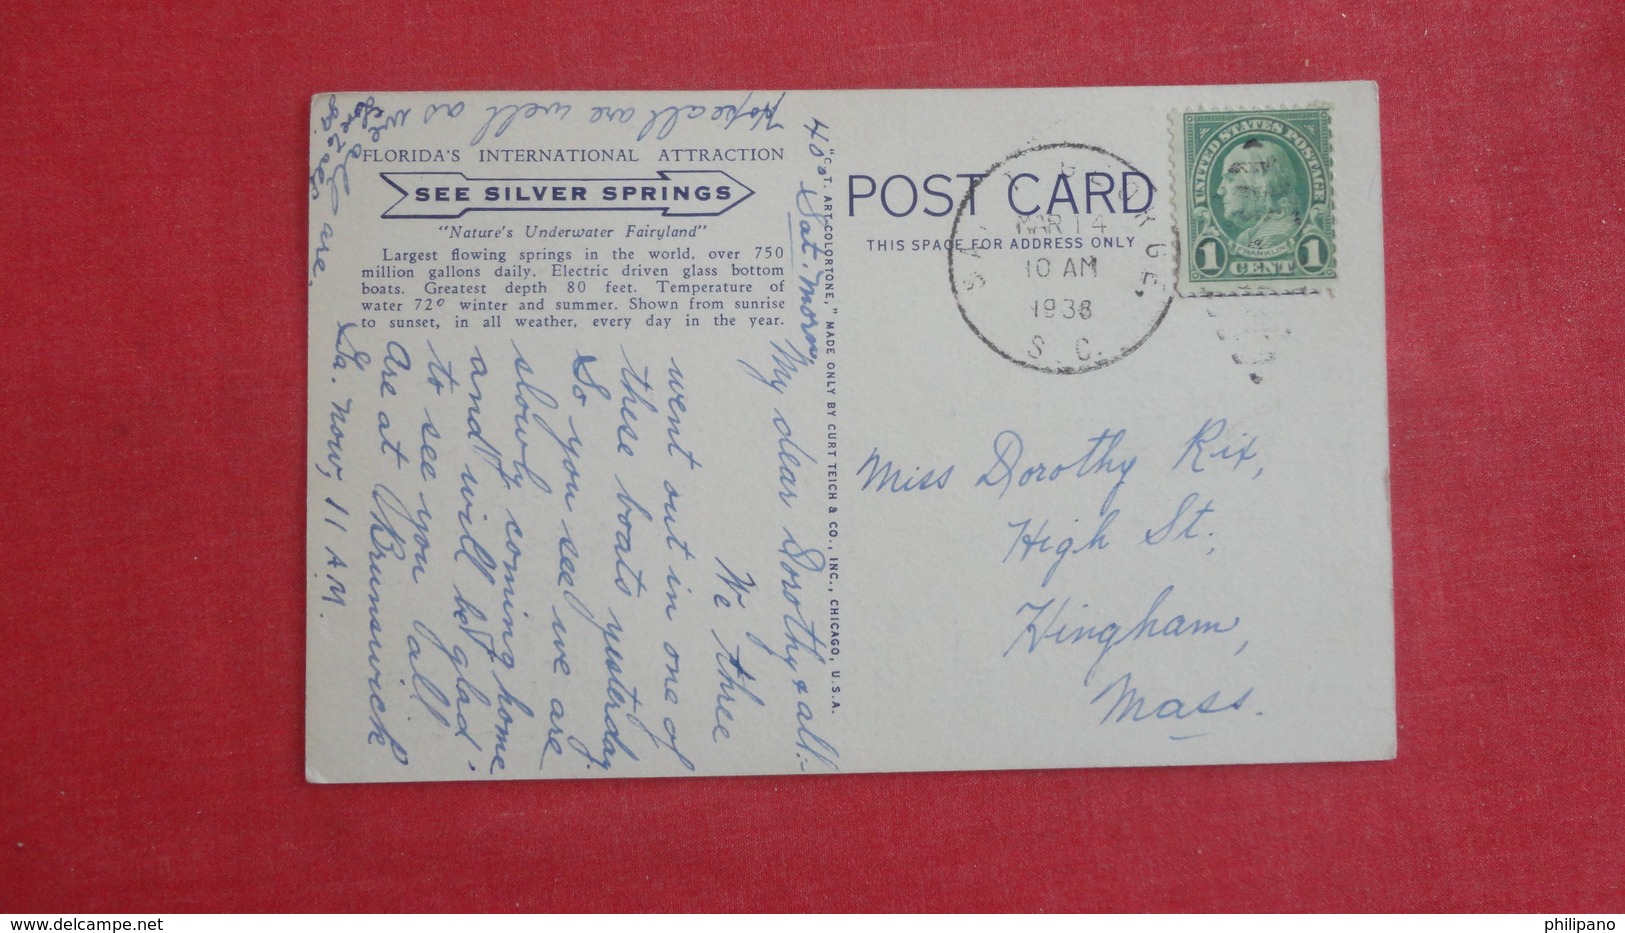 FLORIDA'S INTERNATIONAL ATTRACTION
SEE SILVER SPRINGS
"Nature's Underwater Fairyland"
Largest flowing springs in the world, over 750
million gallons daily. Electric driven glass bottom
boats. Greatest depth 80 feet. Temperature of
water 72º winter and summer. Shown from sunrise
to sunset, in all weather, every day in the year.
"C. T. ART-COLORTONE," MADE ONLY BY CURT TEICH & CO., INC., CHICAGO, U.S.A.
POST CARD
THIS SPACE FOR ADDRESS ONLY
MAR 14
10 AM
S. C.
UNITED STATES POSTAGE
FRANKLIN
1 CENT 1
40° Sat. Morn.
My dear Dorothy & all:-
We three
went out in one of
these boats yesterday.
So you see we are
slowly coming home
and will be glad
to see you all
Are at Brunswick
Ga. now, 11 A.M.
Hope all are well as we
are.
Miss Dorothy Rix,
High St.,
Hingham,
Mass.
www.delcampe.net
philipano